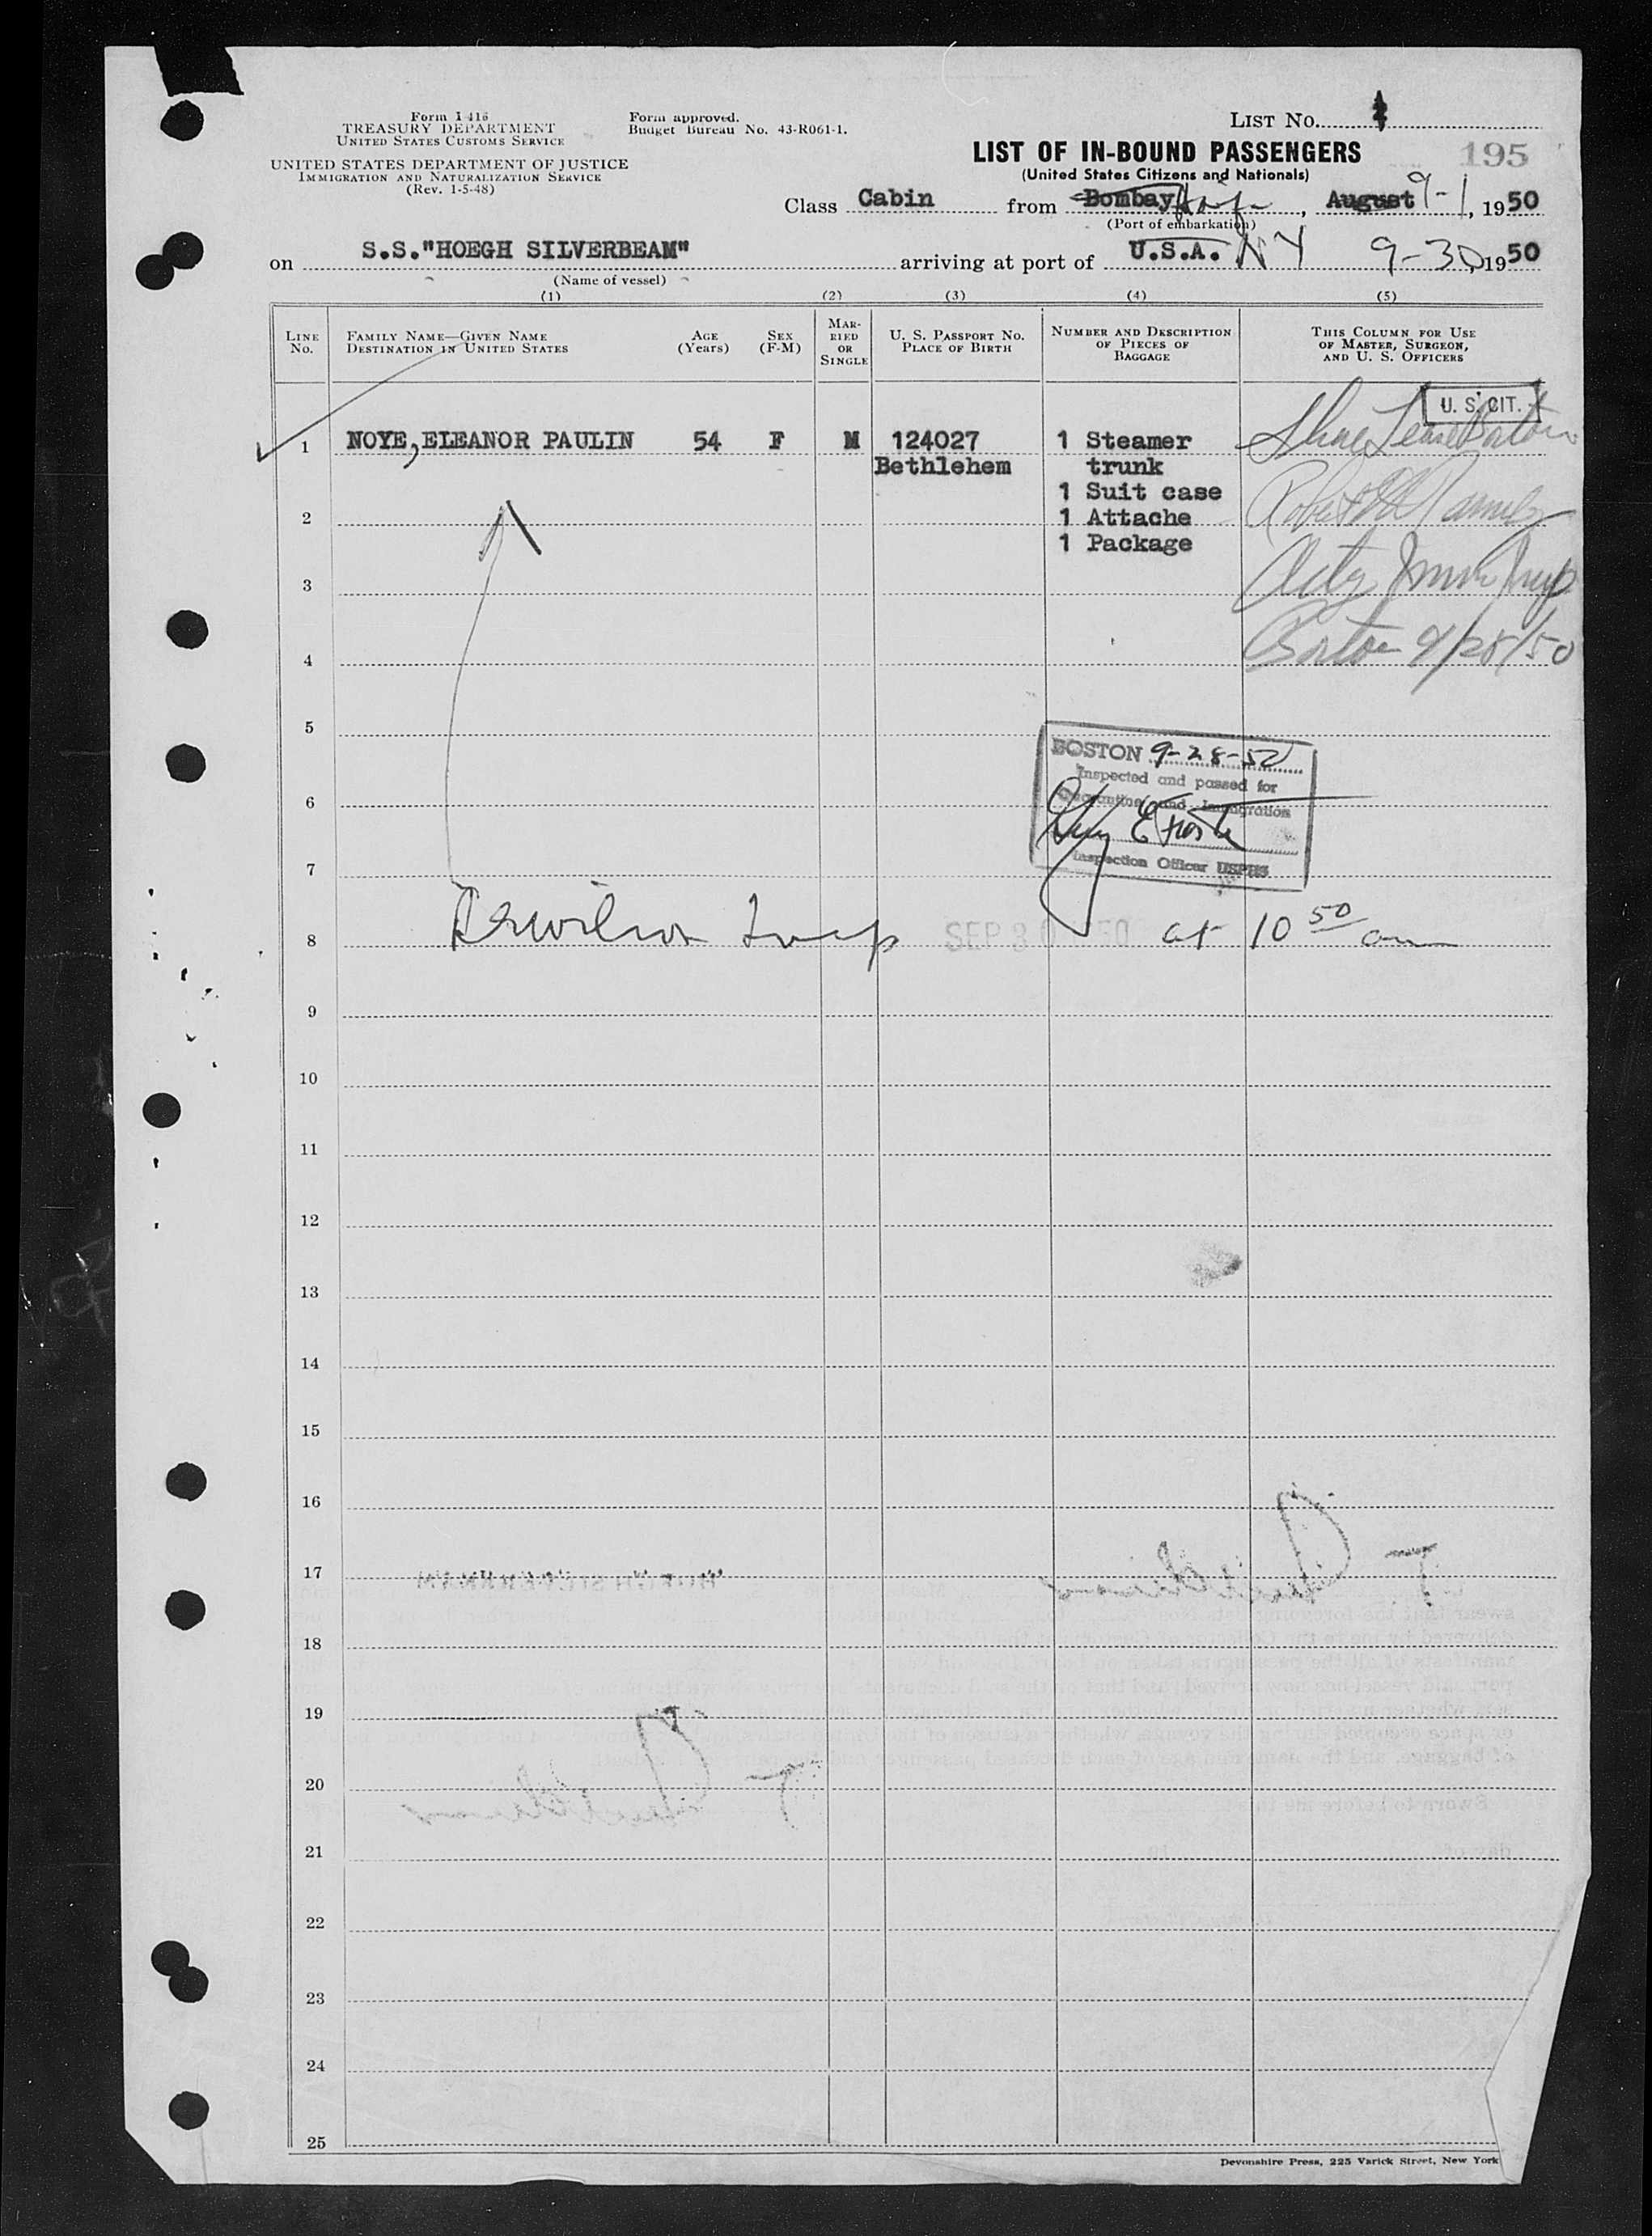 Form I 416
TREASURY DEPARTMENT
UNITED STATES CUSTOMS SERVICE
UNITED STATES DEPARTMENT OF JUSTICE
IMMIGRATION AND NATURALIZATION SERVICE
(Rev. 1-5-48)
Form approved.
Budget Bureau No. 43-R061-1.
LIST NO.
LIST OF IN-BOUND PASSENGERS
195
(United States Citizens and Nationals)
Class Cabin from Bombay Haifa, August 9-1, 1950
(Port of embarkation)
on S.S."HOEGH SILVERBEAM" arriving at port of U.S.A. NY 9-30, 1950
(Name of vessel)
(1) (2) (3) (4) (5)
LINE No.
FAMILY NAME—GIVEN NAME
DESTINATION IN UNITED STATES
AGE (Years)
SEX (F-M)
MARRIED OR SINGLE
U. S. PASSPORT NO.
PLACE OF BIRTH
NUMBER AND DESCRIPTION
OF PIECES OF
BAGGAGE
THIS COLUMN FOR USE
OF MASTER, SURGEON,
AND U. S. OFFICERS
U. S. CIT.
1 NOYE, ELEANOR PAULIN 54 F M 124027 1 Steamer
Bethlehem trunk
1 Suit case
2 1 Attache
1 Package
3
Boston 9/28/50
4
5
BOSTON 9-28-50
Inspected and passed for
Quarantine and Immigration
6
Inspection Officer USPHS
7
8 Insp SEP 30 1950 at 10 50 am
9
10
11
12
13
14
15
16
17
18
19
20
21
22
23
24
25
Devonshire Press, 225 Varick Street, New York